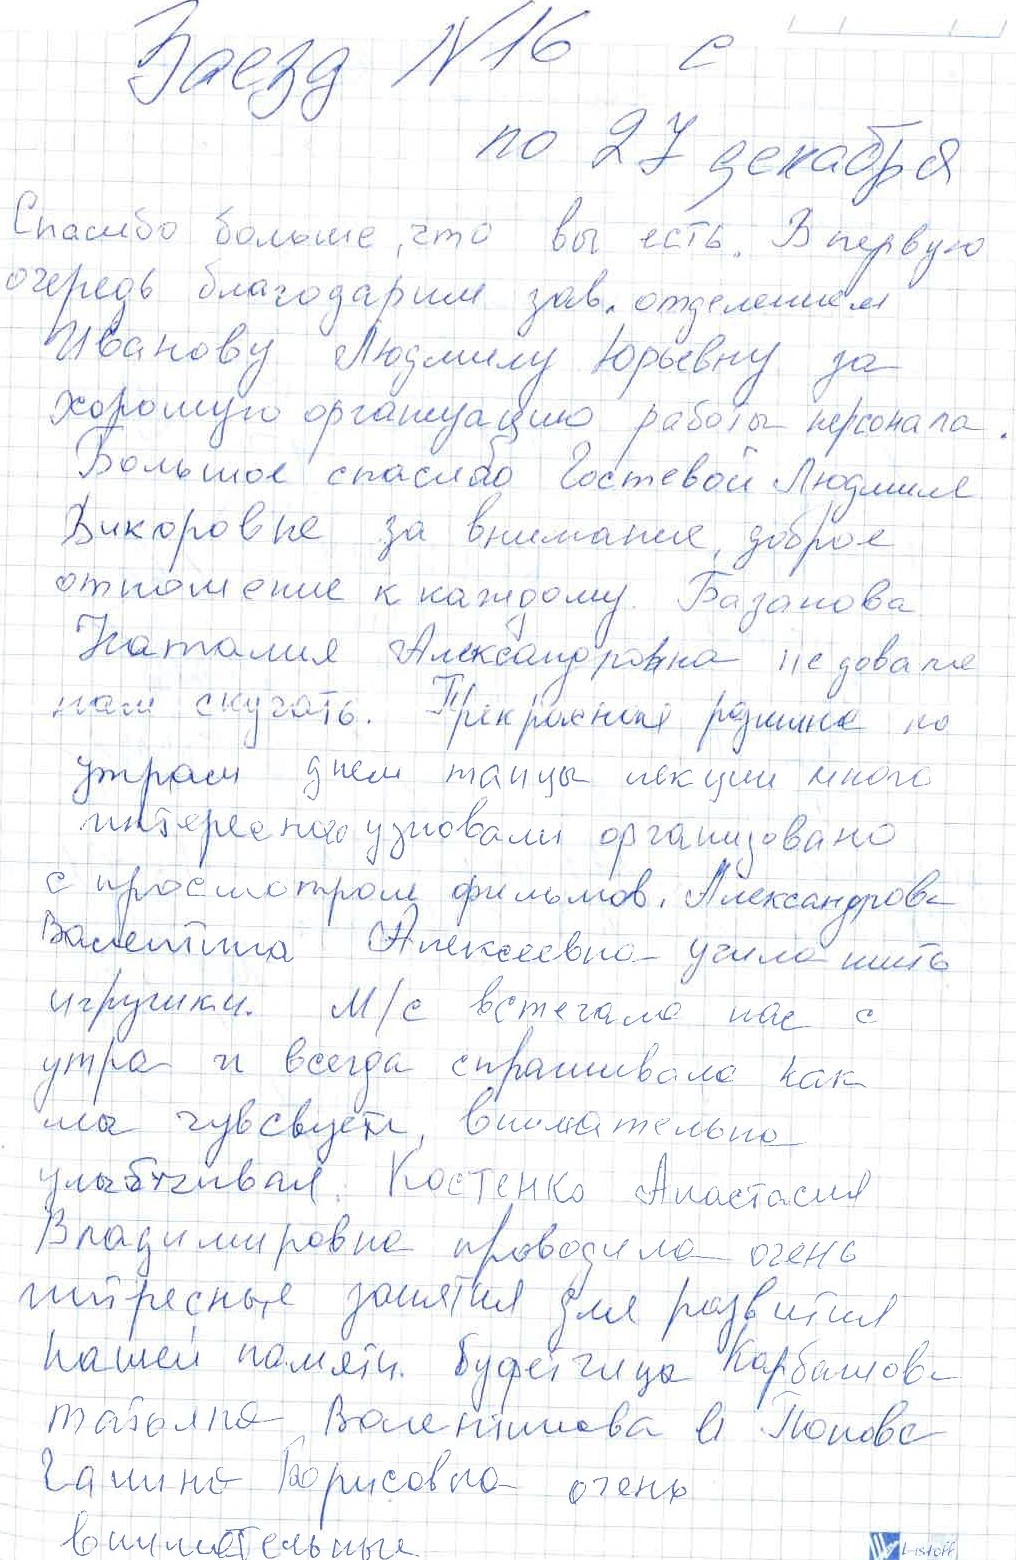 Заезд №16 с
по 27 декабря
Спасибо больше, что вы есть. В первую
очередь благодарим зав. отделением
Иванову Людмилу Юрьевну за
хорошую организацию работы персонала.
Большое спасибо Гостевой Людмиле
Викоровне за внимание, доброе
отношение к каждому. Базанова
Наталия Александровна не довала
нам скучать. Прекрасная розминка по
утрам днем танцы лекции много
интересного узновали организовано
с просмотром фильмов. Александрова
Валентина Алексеевна учила шить
игрушки. М/с встечала нас с
утра и всегда спрашивала как
мы чувсвуем, внимательно
Костенко Анастасия
Владимировна проводила очень
интресные занятия для развития
нашей памяти. Буфетчица Карбашова
татьяна Валентинова и Попова
Галина Борисовна очень
внимательные
Listoff